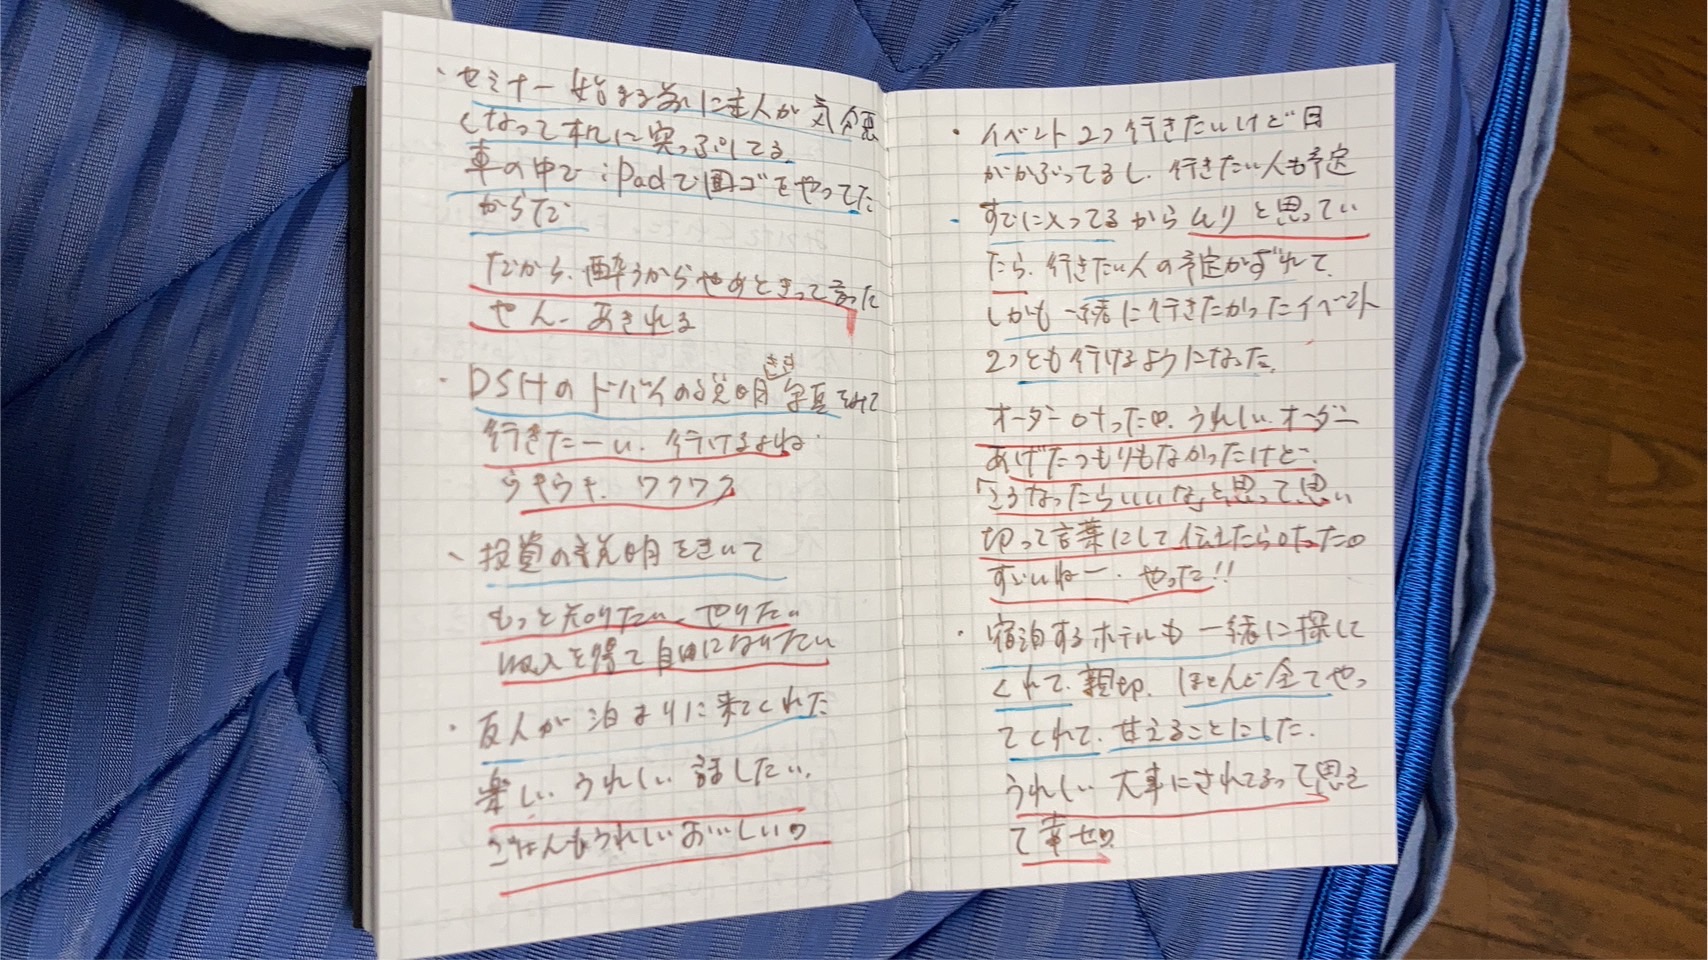 ・セミナー始まる前に主人が気分悪
くなって机に突っぷしてる
車の中でiPadで囲ゴをやってた
からだ
だから、酔うからやめときって言った
やん、あきれる
・DSHのドバイの説明きき写真をみて
行きたーい、行けるよね
うきうき、ワクワク
・投資の説明をきいて
もっと知りたい、やりたい
収入を得て自由になりたい
・友人が泊まりに来てくれた
楽しい、うれしい 話したい、
ごはんもうれしいおいしい♡
・イベント2つ行きたいけど日
がかぶってるし、行きたい人も予定
・すでに入ってるからムリと思ってい
たら、行きたい人の予定がずれて、
しかも一緒に行きたかったイベント
2つとも行けるようになった。
オーダー叶った♡、うれしい、オーダー
あげたつもりもなかったけど、
「こうなったらいいな」と思って思い
切って言葉にして伝えたら叶った♡
すごいねー、やった!!
・宿泊するホテルも一緒に探して
くれて、親切、ほとんど全てやっ
てくれて、甘えることにした、
うれしい 大事にされてるって思え
て幸せ♡